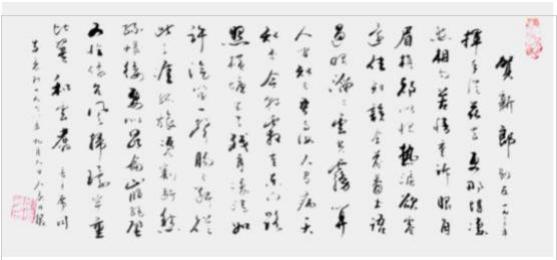 賀新郎 别友 一九二三年
揮手從兹去更那堪凄
然相向苦情重訴眼角
眉梢都似恨熱淚欲零
還住知誤會前番書語
過眼滔滔雲共霧算
人間知己吾和汝人有病天
知否今朝霜重東門路
照橫塘半天殘月凄清如
許汽笛一聲腸已斷從
此天涯孤旅憑割斷愁
絲恨縷要似崑崙崩絕壁
又恰像台風掃寰宇重
比翼和雲翥